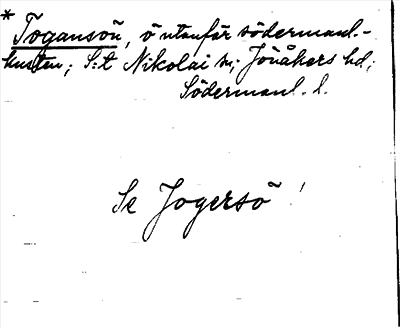 * Togansön, ö utanför södermanl.-
kusten; S:t Nikolai sn; Jönåkers hd;
Södermanl. l.
Se Jogersö!